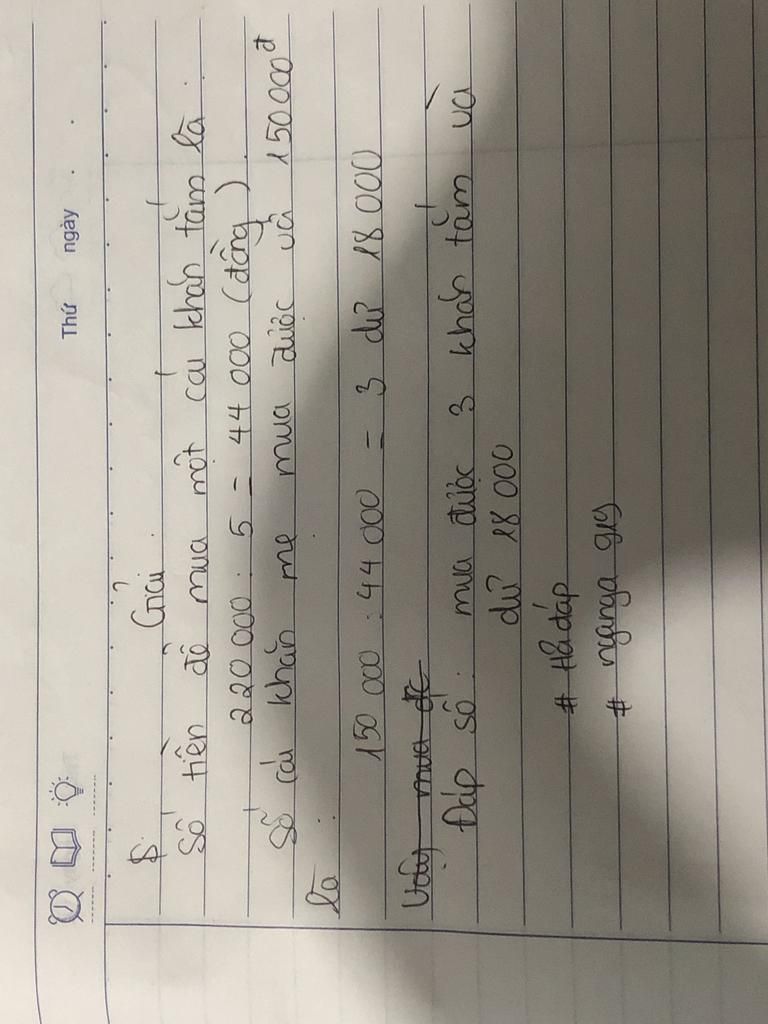 Thứ ngày
Giải
Số tiền để mua một cái khăn tắm là :
220 000 : 5 = 44 000 (đồng)
Số cái khăn mẹ mua được với 150 000đ
là :
150 000 : 44 000 = 3 dư 18 000
Vậy mua đc
Đáp số : mua được 3 khăn tắm và
dư 18 000
# Hỏi đáp